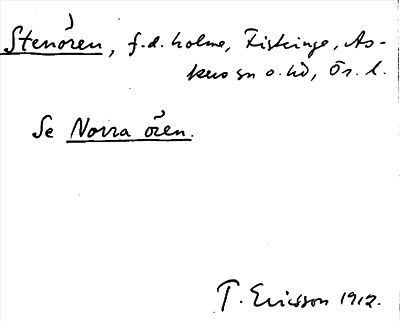 Stenören, f.d. holme, Fiskinge, As-
kers sn o. hd, Ör. l.
Se Norra ören.
T. Ericsson 1912.